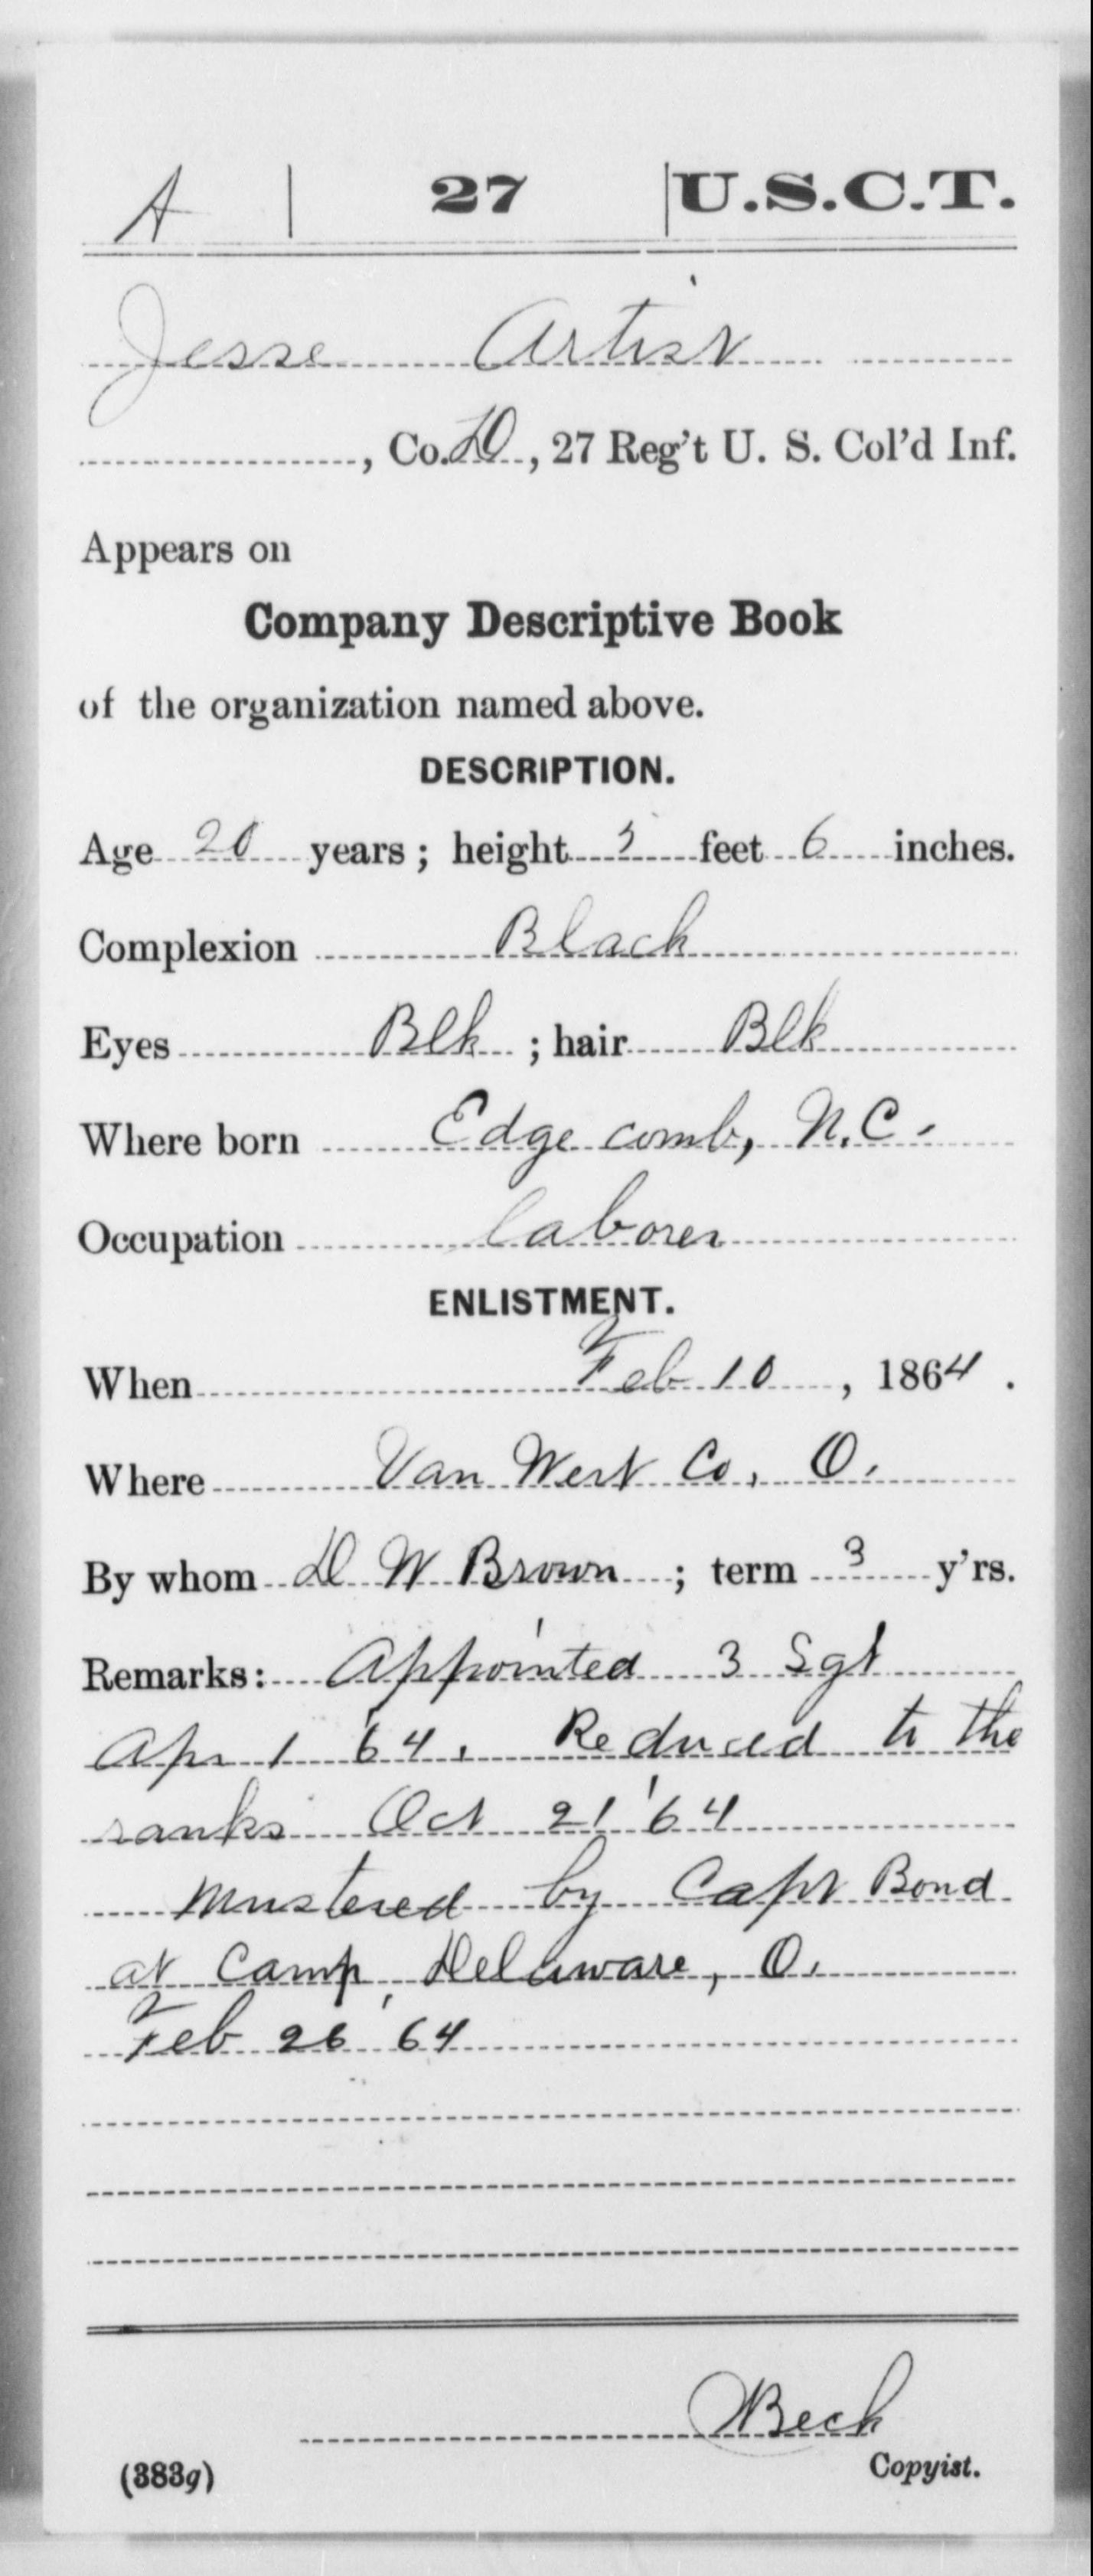 A | 27 | U.S.C.T.
Jesse Artist
, Co. D, 27 Reg't U. S. Col'd Inf.
Appears on
Company Descriptive Book
of the organization named above.
DESCRIPTION.
Age 20 years; height 5 feet 6 inches.
Complexion Black
Eyes Blk; hair Blk
Where born Edgecomb, N.C.
Occupation laborer
ENLISTMENT.
When Feb 10, 1864.
Where Van Wert Co, O.
By whom D W Brown; term 3 y'rs.
Remarks: Appointed 3 Sgt
Apr 1 '64. Reduced to the
ranks Oct 21 '64
Mustered by Capt Bond
at Camp Delaware, O.
Feb 26 '64
Beck
Copyist.
(383g)